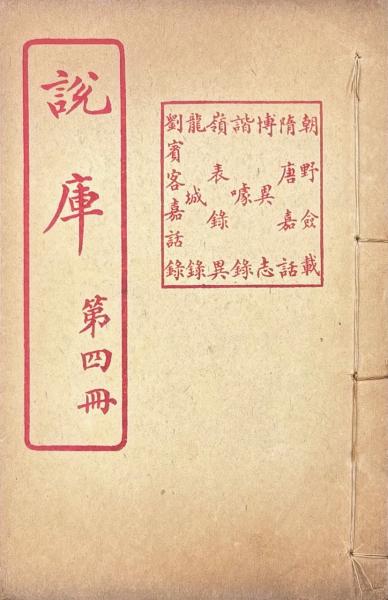 朝野僉載
隋唐嘉話
博異志
諧噱錄
嶺表錄異
龍城錄
劉賓客嘉話錄
說庫 第四冊